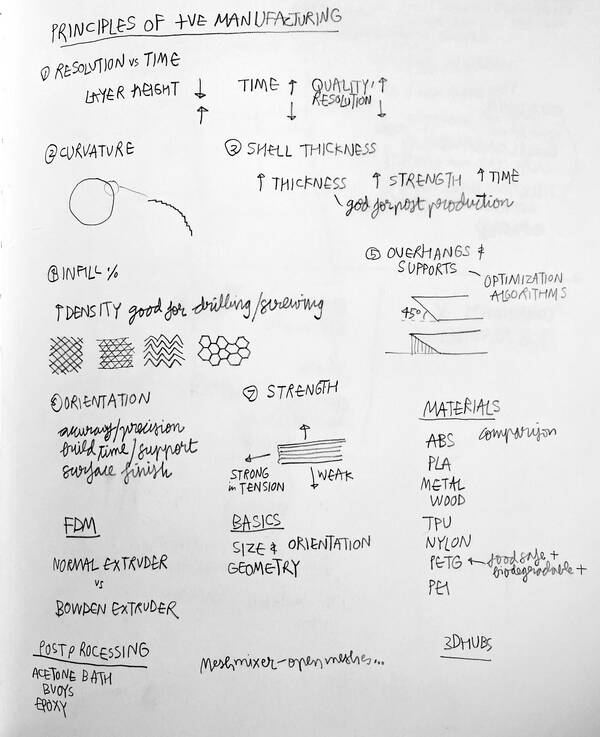 PRINCIPLES OF +VE MANUFACTURING
① RESOLUTION vs TIME
LAYER HEIGHT ↓ TIME ↑ QUALITY/ ↑
↑ ↓ RESOLUTION ↓
② CURVATURE
③ SHELL THICKNESS
↑ THICKNESS ↑ STRENGTH ↑ TIME
god for post production
④ INFILL %
↑ DENSITY good for drilling/screwing
⑤ OVERHANGS &
SUPPORTS
OPTIMIZATION
ALGORITHMS
45°
⑥ ORIENTATION
accuracy/precision
build time/support
surface finish
⑦ STRENGTH
STRONG
in TENSION
WEAK
MATERIALS
ABS comparison
PLA
METAL
WOOD
TPU
NYLON
PETG ← food safe +
biodegradable +
PEI
FDM
NORMAL EXTRUDER
vs
BOWDEN EXTRUDER
BASICS
SIZE & ORIENTATION
GEOMETRY
POST PROCESSING
ACETONE BATH
BUOYS
EPOXY
Meshmixer - open meshes...
3DHUBS